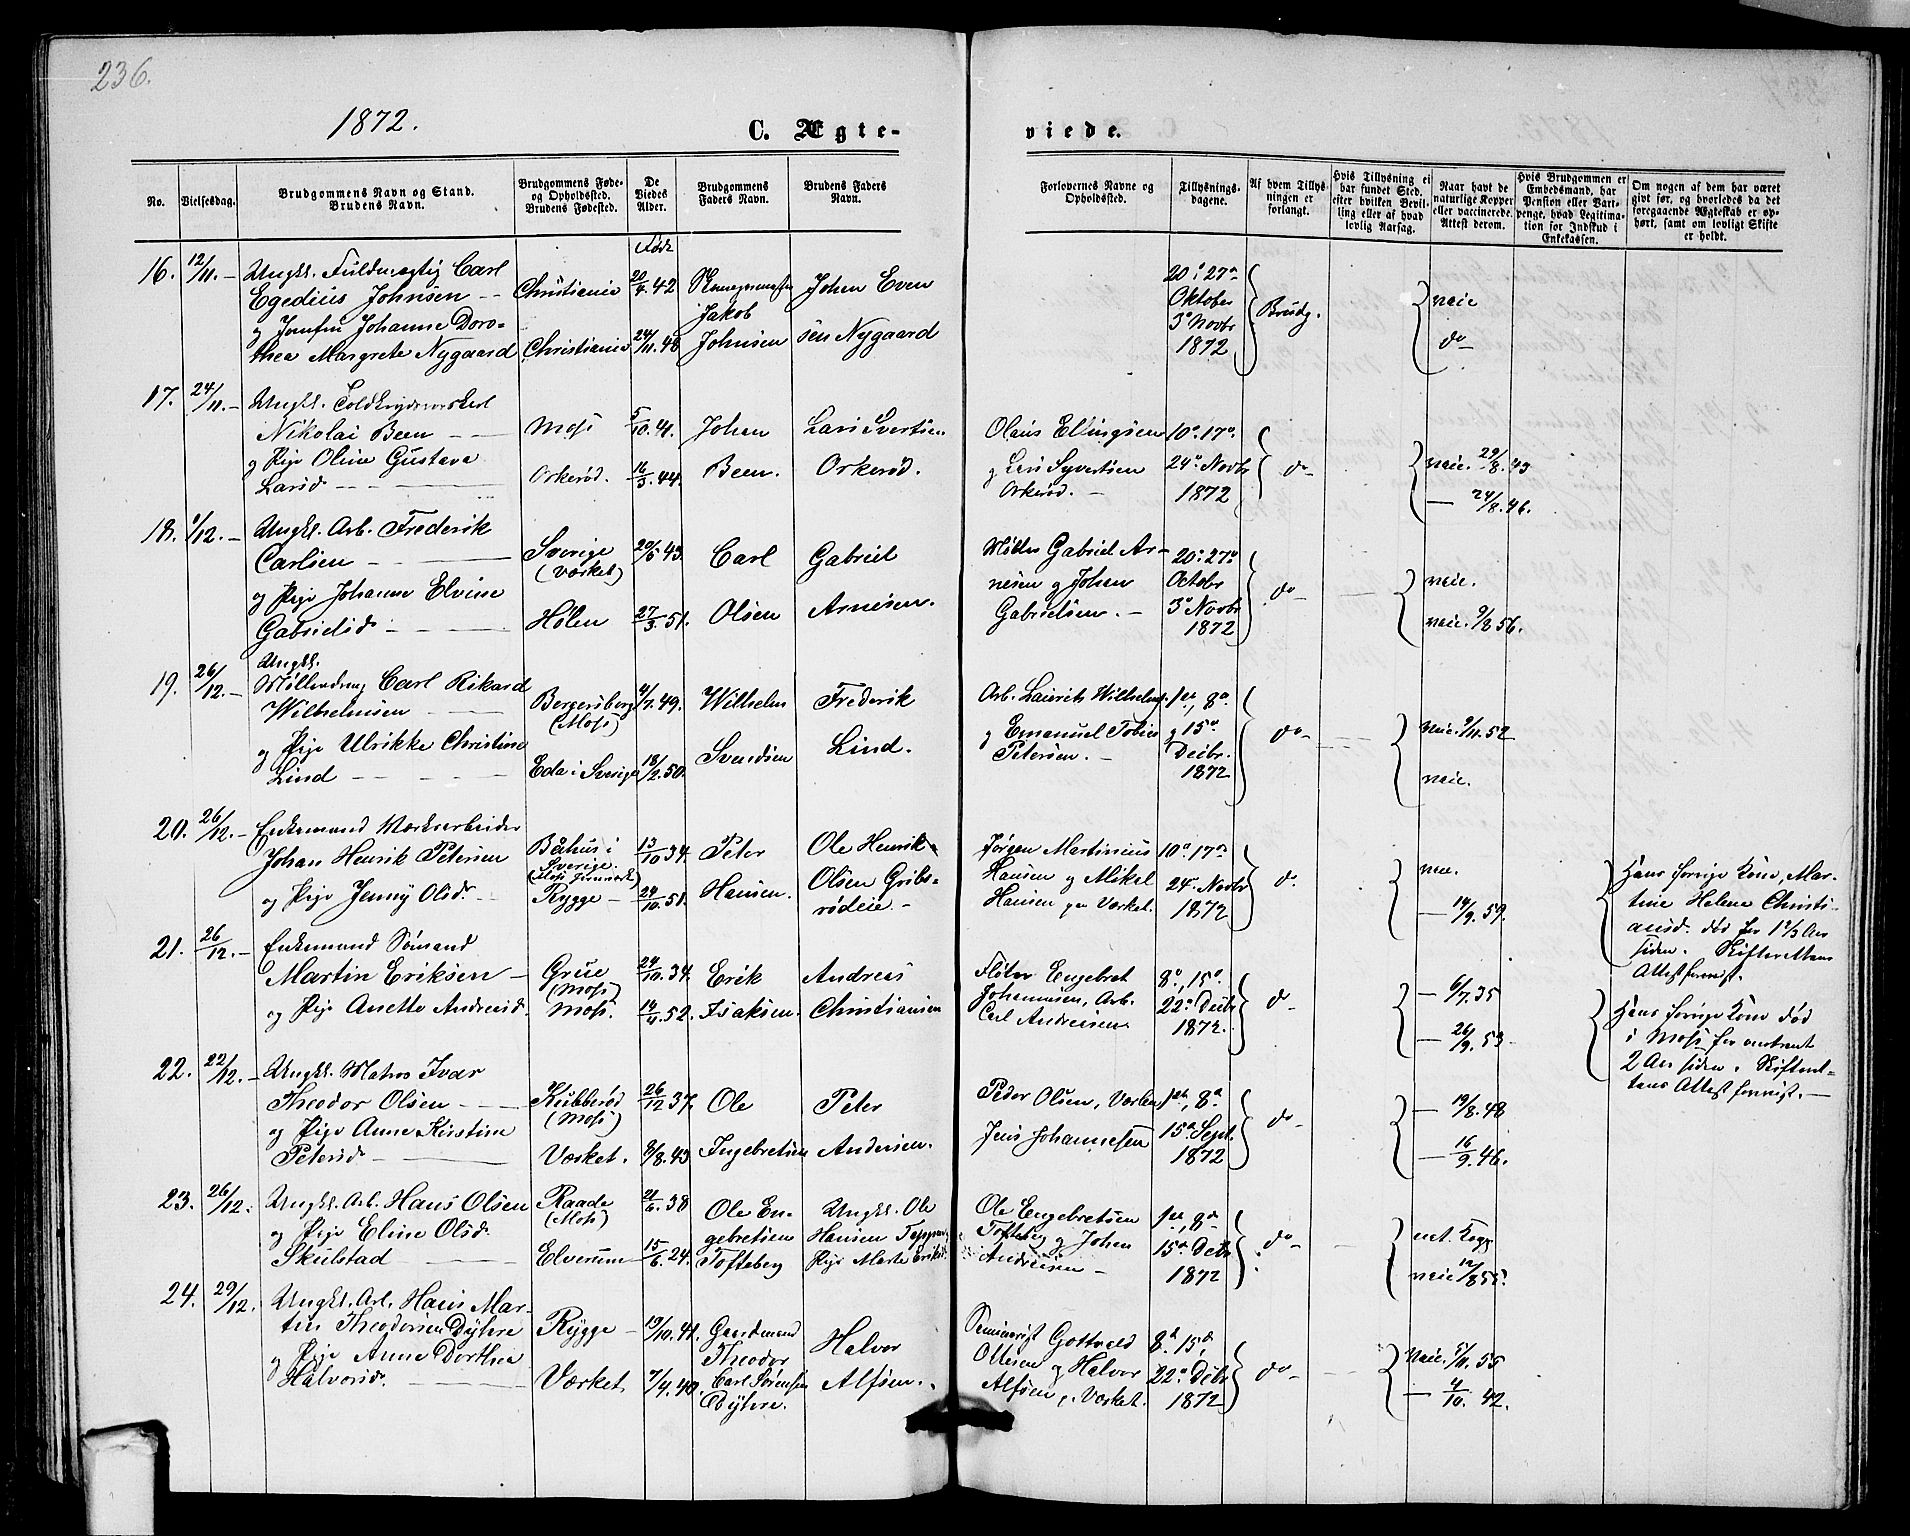 236.
1872.
C. Ægte-
viede.
No.
Vielsesdag.
Brudgommens Navn og Stand.
Brudens Navn.
Brudgommens Føde-
og Opholdssted.
Brudens Fødested.
De
Viedes
Alder.
Brudgommens
Faders Navn.
Brudens Faders
Navn.
Forlovernes Navne og
Opholdssted.
Tillysnings-
dagene.
Af hvem Tillys-
ningen er
forlangt.
Hvis Tillysning ei
har fundet Sted,
efter hvilken Bevil-
ling eller af hvad
lovlig Aarsag.
Naar havt de
naturlige Kopper
eller vaccinerede.
Attest derom.
Hvis Brudgommen er
Embedsmand, har
Pension eller Vart-
penge, hvad Legitima-
tion for Indskud i
Enkekassen.
Om nogen af dem har været
givt før, og hvorledes da det
foregaaende Ægteskab er op-
hørt, samt om lovligt Skifte
er holdt.
Født
16. 12/11. Ungk. Fuldmægtig Carl
Egedius Johnsen
og Jomfru Johanne Doro-
thea Margrete Nygaard
Christiania
Christiania
20/4. 42
24/11. 48
Jakob
Johnsen
Johan Even
sen Nygaard
20. 27de
Oktober
3. Novbr
1872
Brudg.
vacc
do
17. 24/11. Ungk.
Nikolai Been
og Pige Oline Gustava
Larsd.
Moss
Orkerød.
5/10. 41.
16/3. 44.
Johan
Been.
Lars Svertsen
Orkerød.
Olaus Ellingsen
og Lars Syvertsen
Orkerød.
10. 17.
24. Novbr
1872
do
vacc. 29/8. 43
24/8. 46.
18. 1/12. Ungk. Arb. Frederik
Carlsen
og Pige Johanne Elvine
Gabrielsd.
Sverige
(Værket)
Hølen
20/5 43.
27/3. 51.
Carl
Olsen
Gabriel
Arnesen.
Møller Gabriel Ar-
nesen og Johan
Gabrielsen.
20. 27.
Octobr
3. Novbr
1872
do
vacc.
vacc. 9/8 56.
19. 26/12. Ungk.
Møllerdreng Carl Rikard
Wilhelmsen
og Pige Ulrikke Christine
Lind
Bergersborg
(Moss)
Eda i Sverige
/7. 49.
18/2. 50.
Wilhelm
Svendsen
Frederik
Lind.
Arb. Laurits Wilhelms.
og Emanuel Tobias
Petersen.
1ste, 8de
og 15de
Decbr.
1872
do
vacc. 9/11. 52
vacc.
20. 26/12. Enkemand Værksarbeider
Johan Henrik Petersen
og Pige Jenny Olsd.
Båhus i
Sverige.
(Moss Jernværk)
Rygge
13/10 34.
24/10. 51.
Peter
Hansen.
Ole Henrik
Olsen Gribs-
rødeie.
Jørgen Martinius
Hansen og Mikal
Hansen paa Værket.
10. 17.
24. Novbr
1872
do
vacc.
14/9. 59.
Hans forrige Kone, Mar-
tine Helene Christi-
ansd. død for 1 1/2 Aar
siden. Skifterettens
Attest forevist.
21. 26/12. Enkemand Sømand
Martin Eriksen
og Pige Anette Andreasd.
Grue
(Moss)
Moss.
24/10. 34.
14/4. 52.
Erik
Isaksen.
Andreas
Christiansen
Fløter Engebret
Johannesen, Arb.
Carl Andreasen
8., 15.
22. Decbr
1872.
do
6/7. 35
26/9. 53
Hans forrige Kone død
i Moss for omtrent
2 Aar siden. Skifteret-
tens Attest forevist.
22. 22/12. Ungk. Matros Ivar
Theodor Olsen
og Pige Anne Kirstine
Petersd.
Kubberød
(Moss)
Værket.
26/12 37.
/8. 43
Ole
Ingebretsen
Peter
Andersen.
Peder Olsen, Værket
Jens Johannesen
1ste, 8de
15de Sept.
1872
do
19/8. 48
16/9. 46.
23. 26/12. Ungk. Arb. Hans Olsen
og Pige Eline Olsd.
Skulstad
Raade
(Moss)
Elverum
21/6. 38
15/6. 24.
Ole En-
gebretsen
Tofteberg
Ungk. Ole
Hansen
Pige Marte Eriksd.
Ole Engebretsen
Tofteberg og Johan
Andersen
1ste, 8de
15de Decbr
1872
do
nat. Kopp.
vacc 12/8 55.
24. 29/12. Ungk. Arb. Hans Mar-
tin Theodorsen Dyhre
og Pige Anne Dorthea
Halvorsd.
Rygge
Værket
19/10. 41.
7/4. 40.
Gaardmand
Theodor
Carl Sørensen
Dyhre.
Halvor
Alfsen.
Seminarist Gottvald
Ottesen og Halvor
Alfsen, Værket.
8de 15de
22de Decbr
1872
do
vacc. 5/11. 55
4/10. 42.